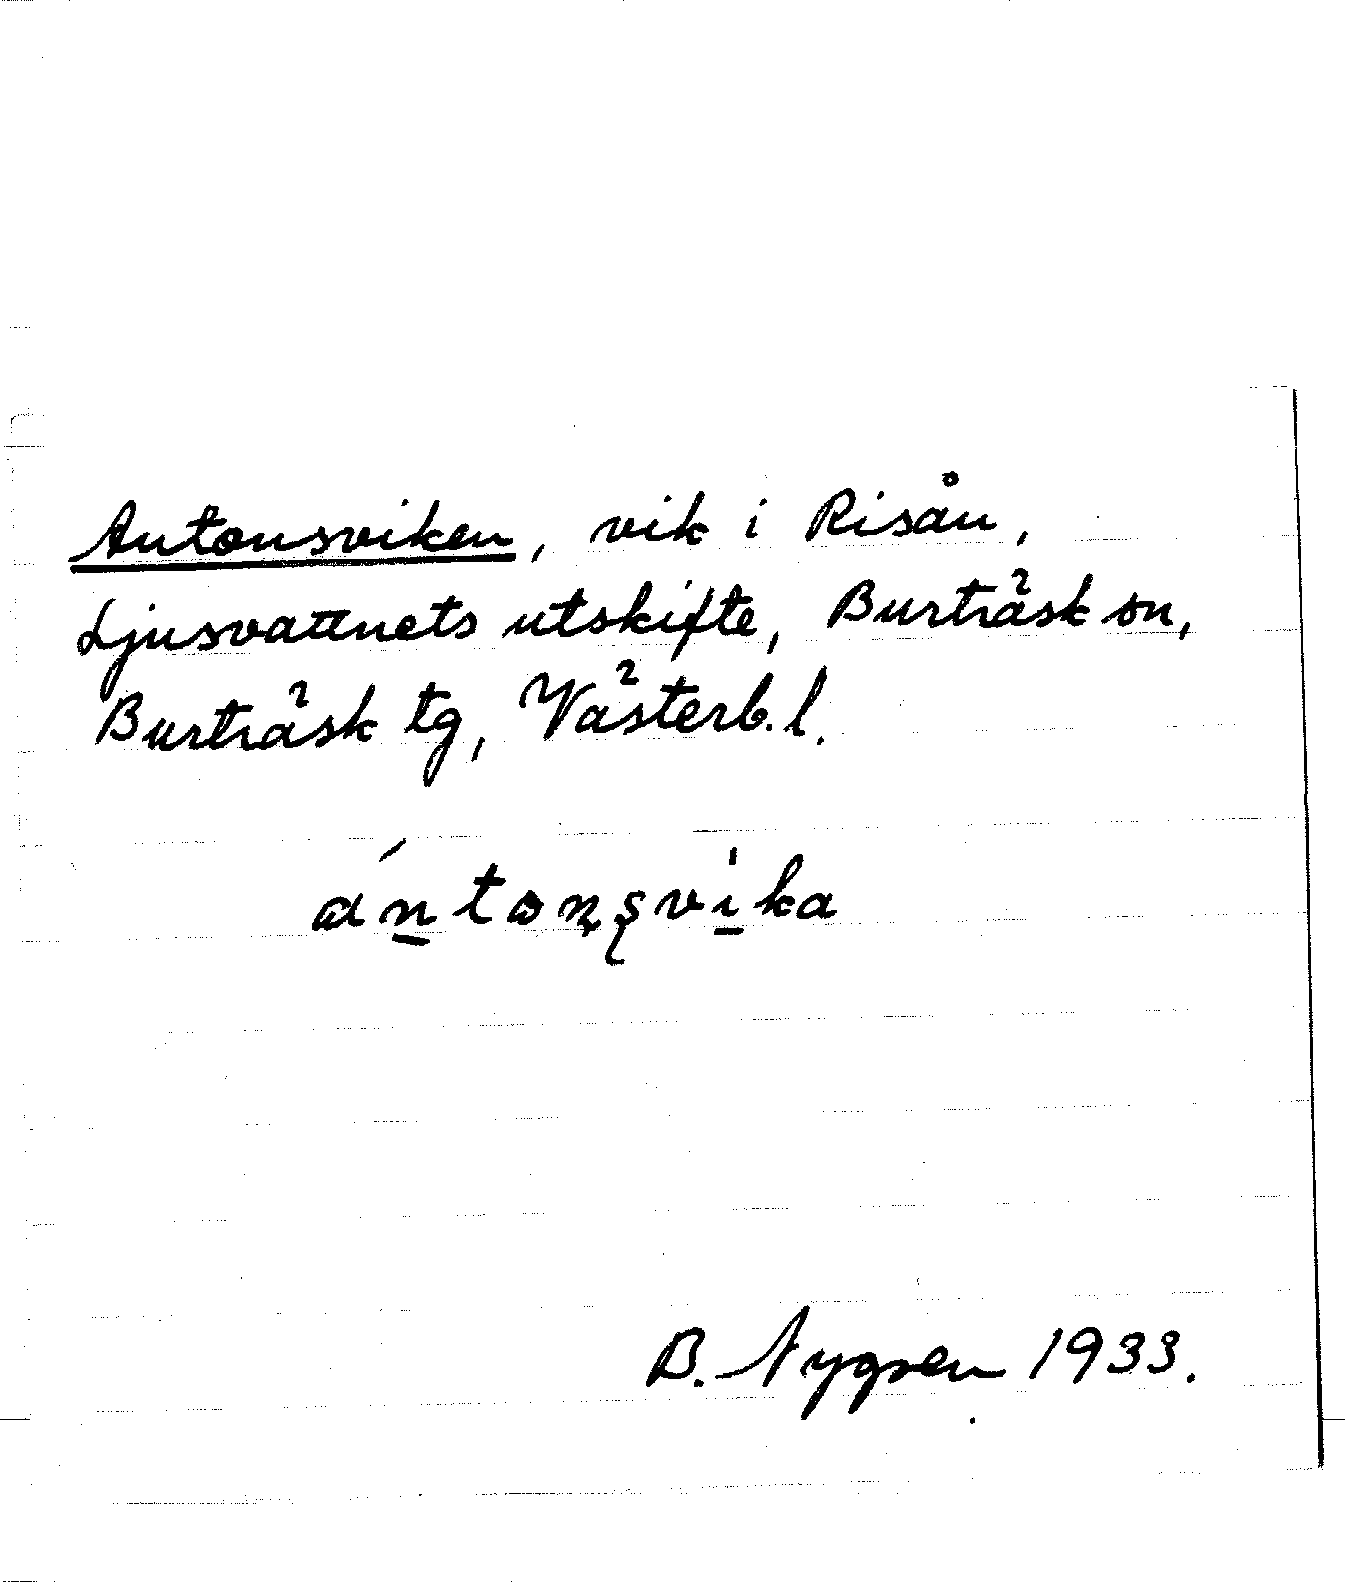 Antonsviken, vik i Risån,
Ljusvattnets utskifte, Burträsk sn,
Burträsk tg, Västerb. l.
án̠tonʂvi̠̍ka
B. Nygren 1933.